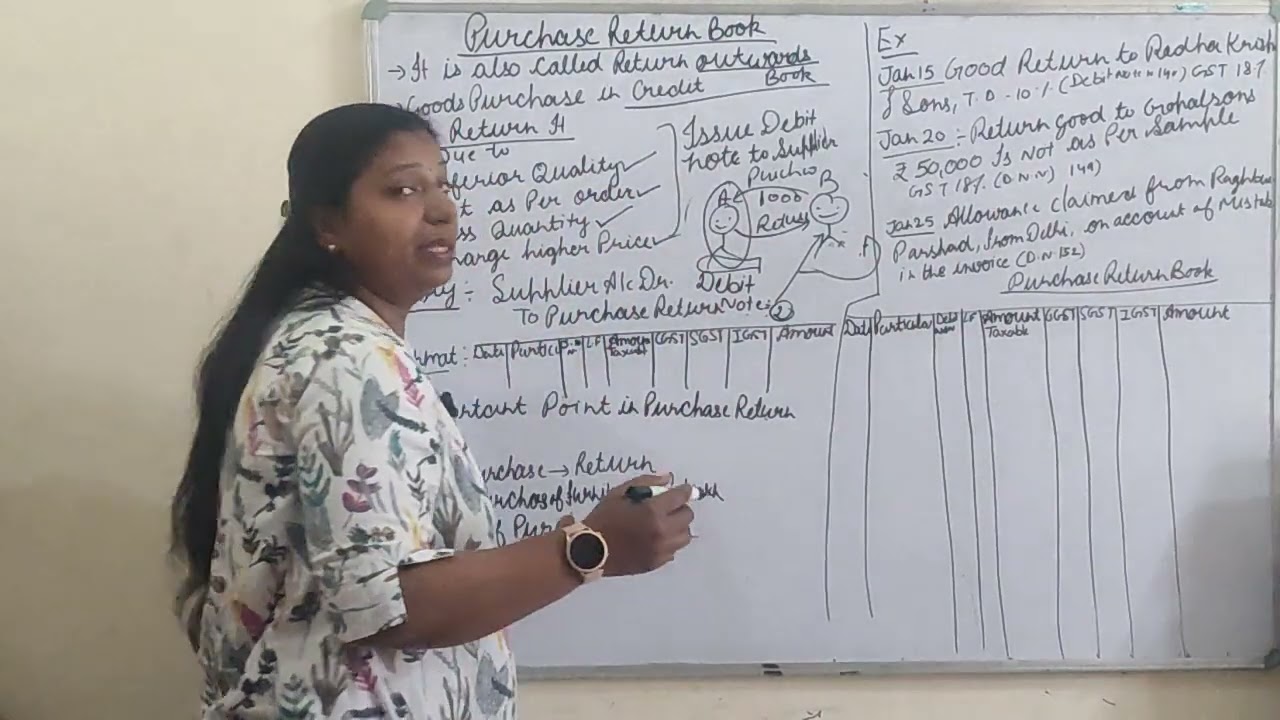 Purchase Return Book
→ It is also called Return outwards
Book
Goods Purchase in Credit
Return It
Due to
ferior Quality ✓
t as Per order ✓
ss Quantity ✓
harge higher Price ✓
Issue Debit
note to Supplier
A B
Purchas
1000
Return
Debit
Note
2
y :- Supplier A/c Dr.
To Purchase Return
rmat : Date Particu D.N LF Amoun Taxabl CGST SGST IGST Amount
rtant Point in Purchase Return
urchase → Return
urchas of furni
f Pur
Ex
Jan 15 Good Return to Radha Krish
& Sons, T.D. 10 %. (Debit Note no 140) GST 18%.
Jan 20 :- Return good to Grohal sons
₹ 50,000 Is Not as Per Sample
GST 18%. (D.N.N) 149)
Jan 25 Allowance claimed from Raghbeer
Parshad, from Delhi, on account of Mistak
in the invoice (D.N. 152)
Purchase Return Book
Date Particular Debit Note LF Amount Taxable CGST SGST IGST Amount